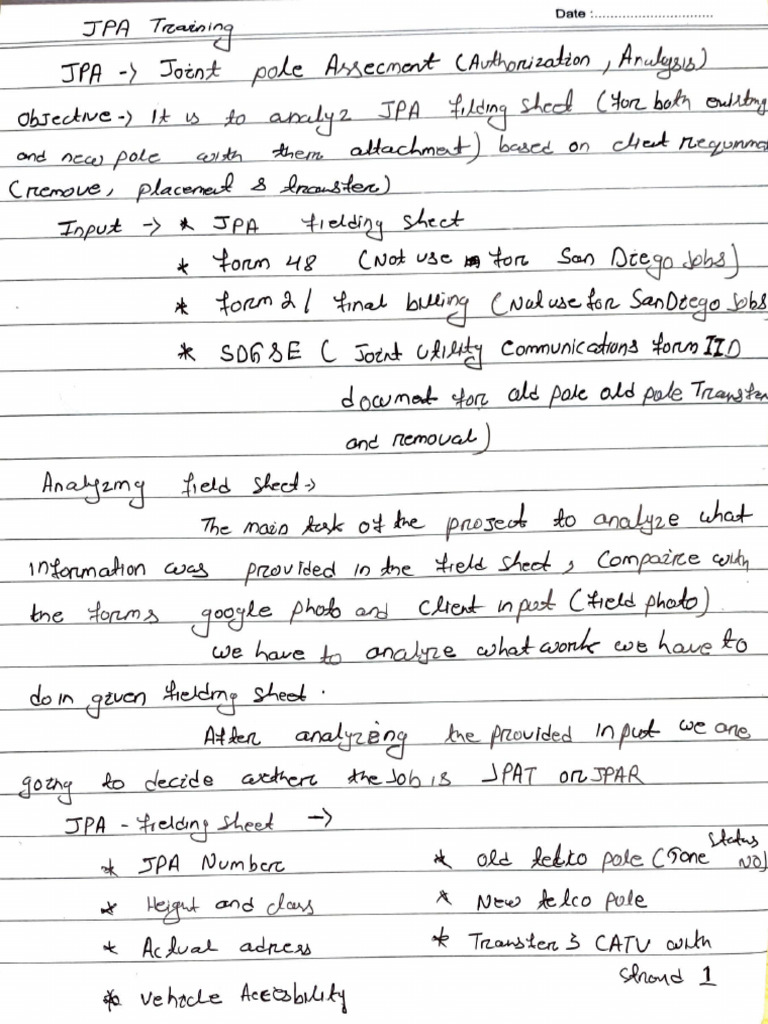 Date :
JPA Training
JPA -> Joint pole Assecment (Authorization, Analysis)
Objective -> It is to analyz JPA filding sheet (for both existing
and new pole with them attachment) based on client
(remove, placement & transfer)
Input -> * JPA fielding sheet
* form 48 (Not use for San Diego Jobs)
* form 21 final billing (Not use for San Diego Jobs
* SDG&E ( Joint Utility Communications form IID
document for old pole old pole Transfer
and removal)
Analyzing field sheet ->
The main task of the project to analyze what
information was provided in the field sheet, Compairce with
the forms google photo and client input (field photo)
we have to analyze what work we have to
do in given fielding sheet.
After analyzing the provided input we are
going to decide the Job is JPAT or JPAR
JPA - fielding sheet ->
* JPA Number
* Height and class
* Actual adress
* vehicle Accesbility
* old telco pole ( Status NO)
* New telco pole
* Transfer 3 CATV with
strand 1